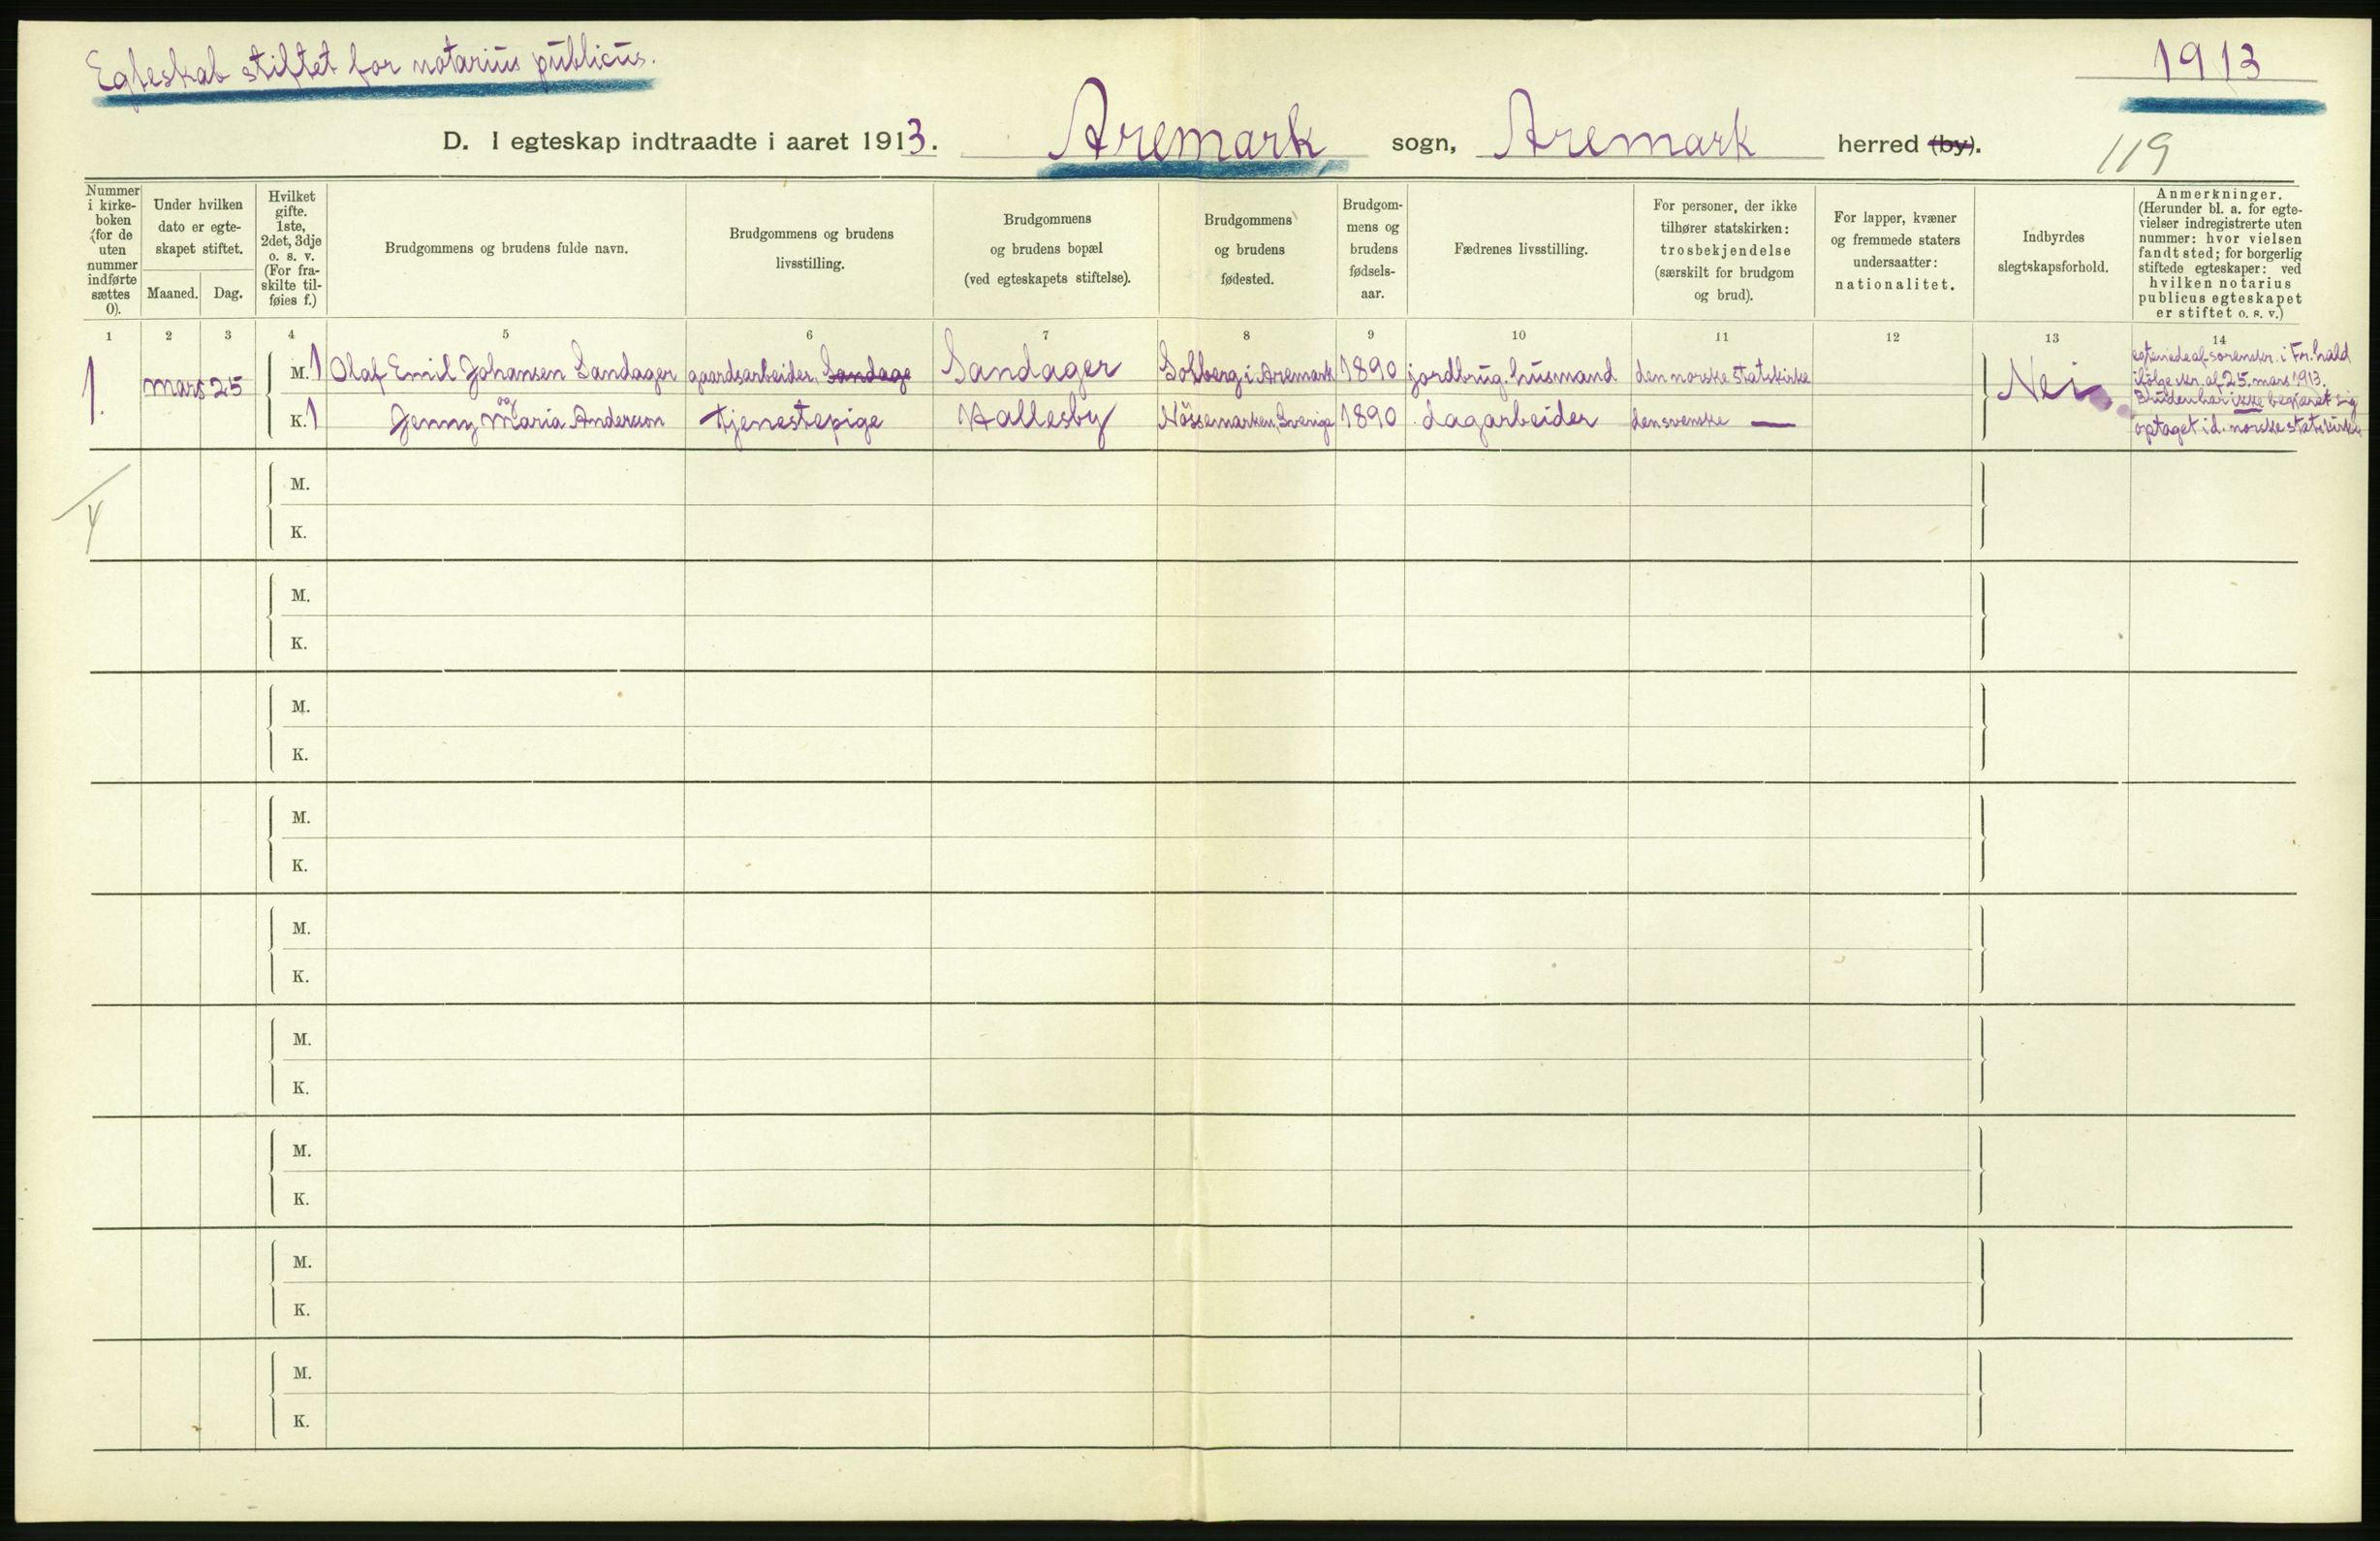 Egteskab stiftet for notarius publicus.
1913
D. I egteskap indtraadte i aaret 1913. Aremark sogn, Aremark herred (by).
119
Nummer i kirke-boken (for de uten nummer indførte sættes 0).
Under hvilken dato er egte-skapet stiftet.
Maaned.
Dag.
Hvilket gifte. 1ste, 2det, 3dje o. s. v. (For fra-skilte til-føies f.)
Brudgommens og brudens fulde navn.
Brudgommens og brudens livsstilling.
Brudgommens og brudens bopæl (ved egteskapets stiftelse).
Brudgommens og brudens fødested.
Brudgom-mens og brudens fødsels-aar.
Fædrenes livsstilling.
For personer, der ikke tilhører statskirken: trosbekjendelse (særskilt for brudgom og brud).
For lapper, kvæner og fremmede staters undersaatter: nationalitet.
Indbyrdes slegtskapsforhold.
Anmerkninger. (Herunder bl. a. for egte-vielser indregistrerte uten nummer: hvor vielsen fandt sted; for borgerlig stiftede egteskaper: ved hvilken notarius publicus egteskapet er stiftet o. s. v.)
1 2 3 4 5 6 7 8 9 10 11 12 13 14
1. mars 25 M. 1 Olaf Emil Johansen Sandager gaardsarbeider, Sandage Sandager Solberg i Aremark 1890 jordbrug. husmand den norske statskirke Nei
og
K. 1 Jenny Maria Andersson tjenestepige Hallesby Nössemarken, Sverige 1890 dagarbeider den svenske —
egteviede af sorenskr. i Fr.hald
ifølge skr. af 25. mars 1913.
Bruden har ikke begjæret sig
optaget i d. norske statskirke
4
M.
K.
M.
K.
M.
K.
M.
K.
M.
K.
M.
K.
M.
K.
M.
K.
M.
K.